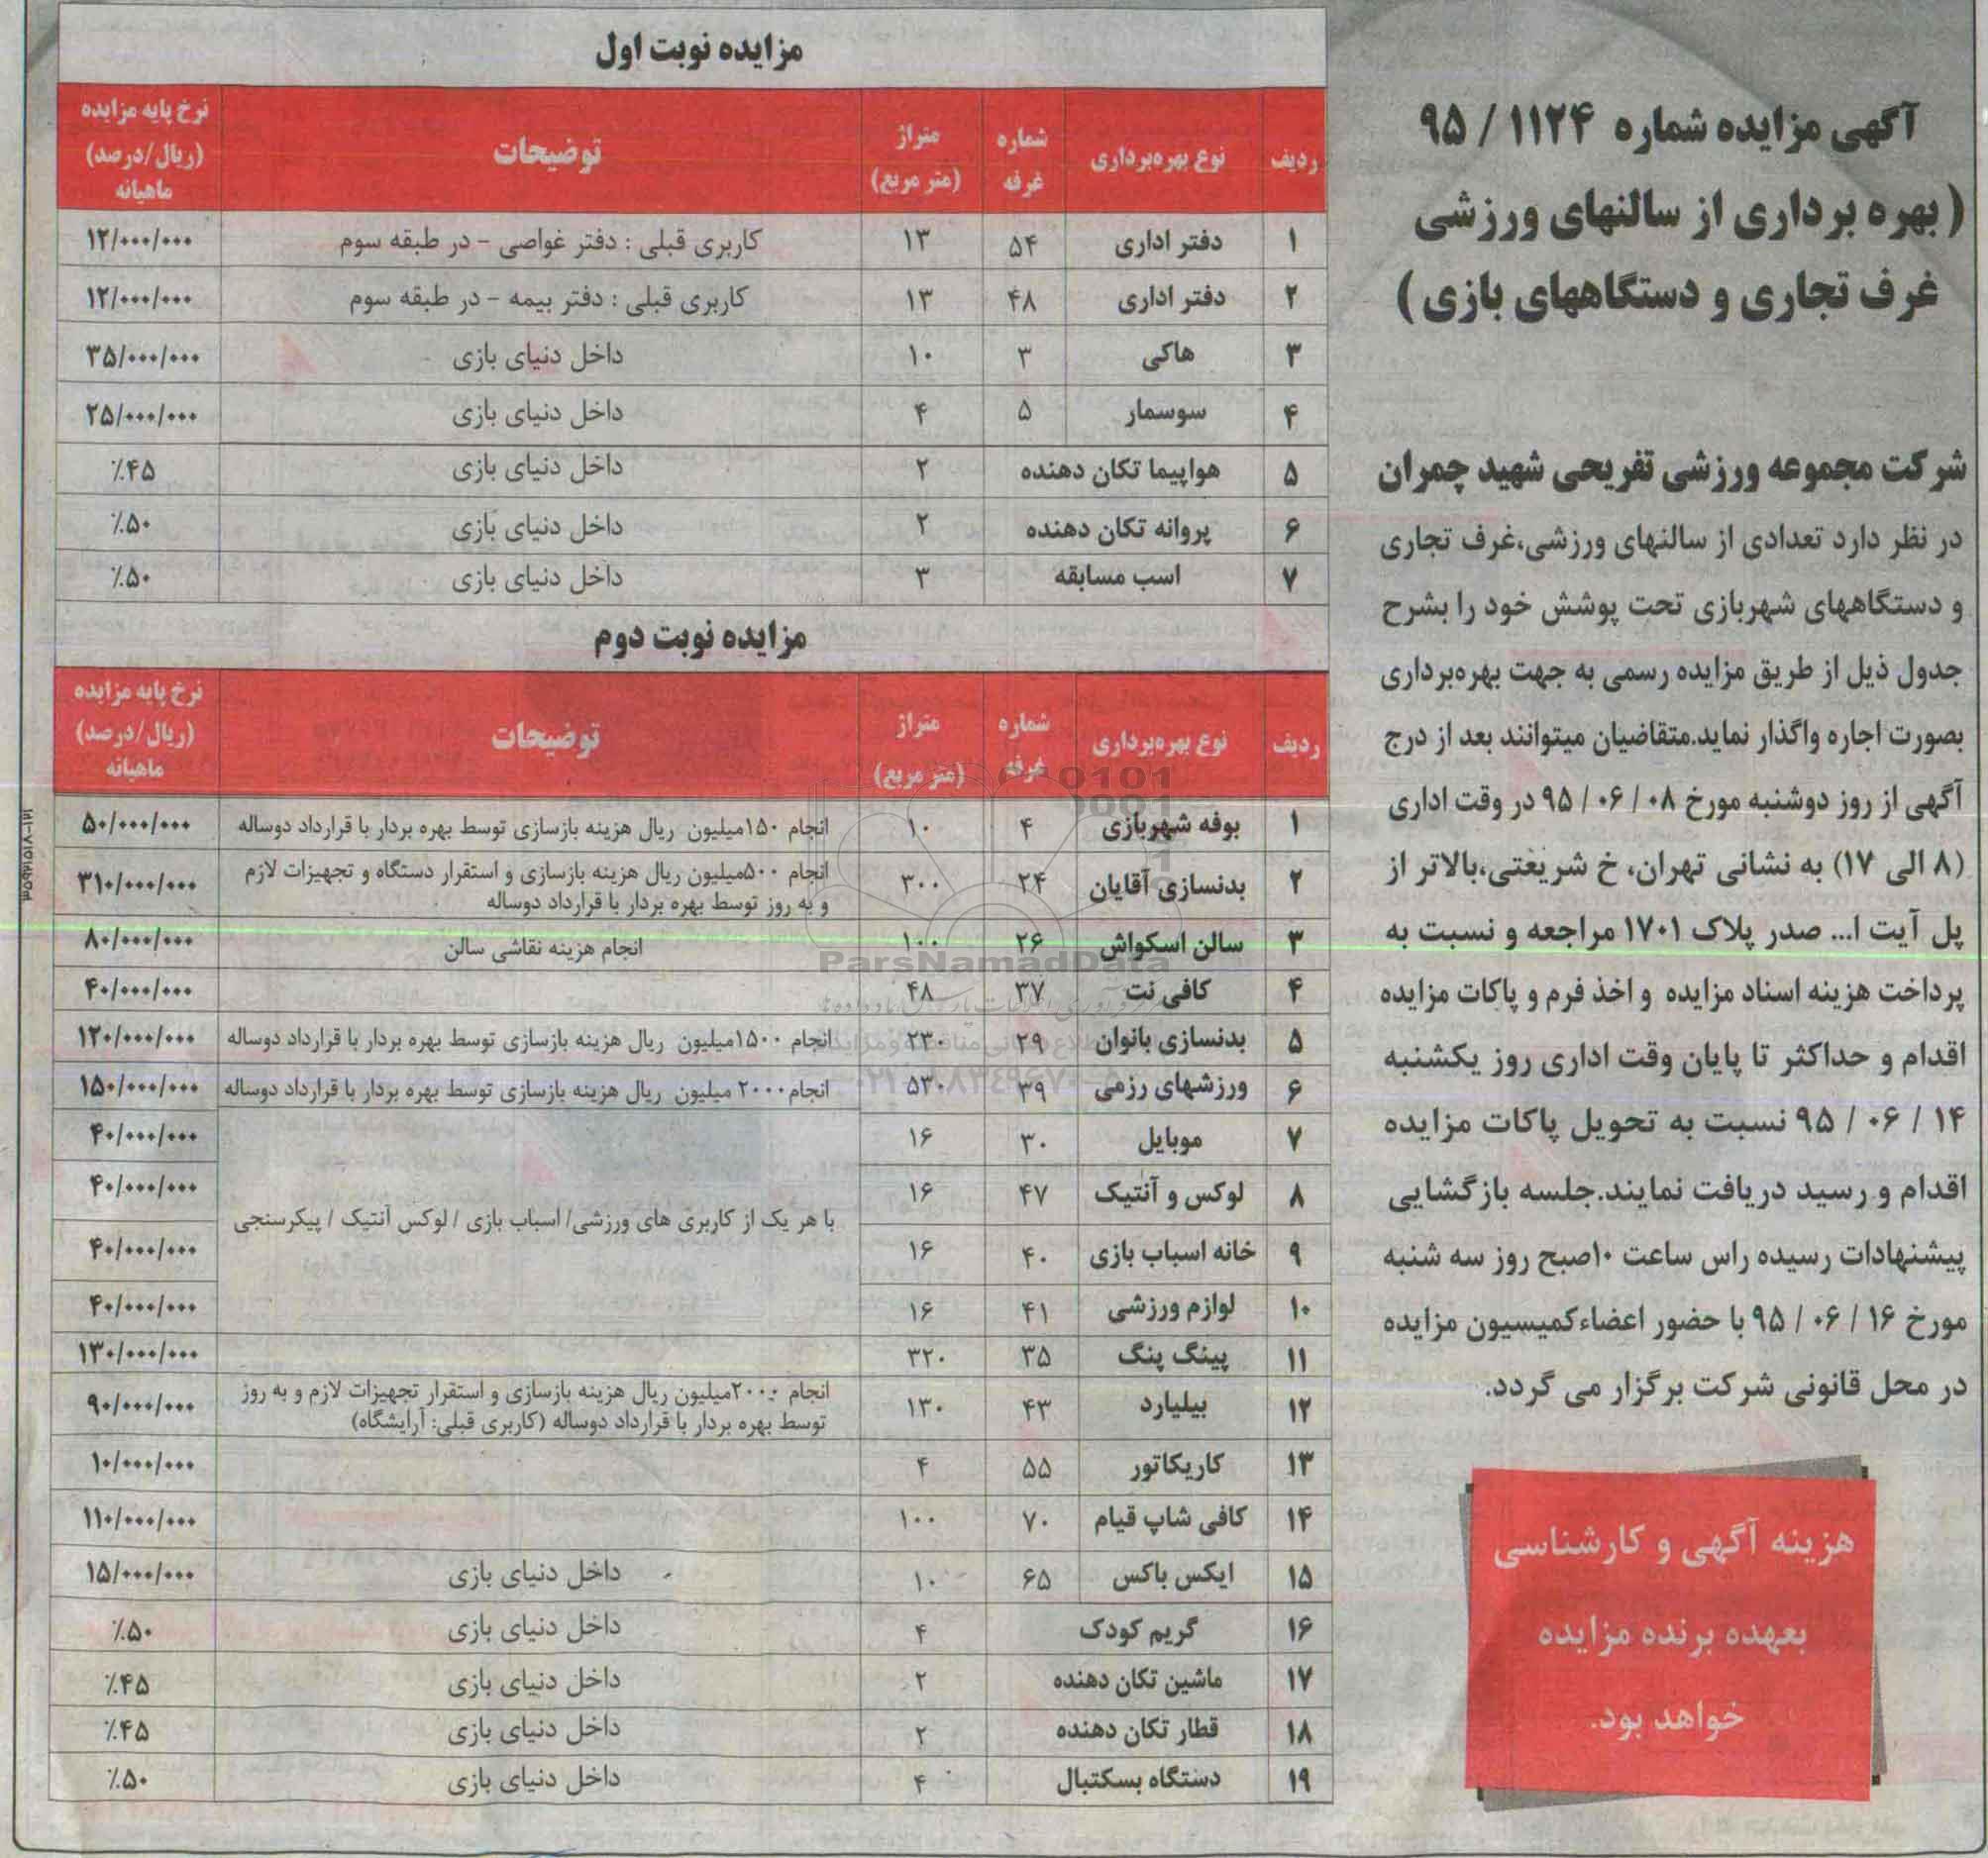 آگهی مزایده شماره ۱۱۲۴ / ۹۵
( بهره برداری از سالنهای ورزشی
غرف تجاری و دستگاههای بازی )
شرکت مجموعه ورزشی تفریحی شهید چمران
در نظر دارد تعدادی از سالنهای ورزشی،غرف تجاری
و دستگاههای شهربازی تحت پوشش خود را بشرح
جدول ذیل از طریق مزایده رسمی به جهت بهره‌برداری
بصورت اجاره واگذار نماید.متقاضیان میتوانند بعد از درج
آگهی از روز دوشنبه مورخ ۰۸ / ۰۶ / ۹۵ در وقت اداری
(۸ الی ۱۷) به نشانی تهران، خ شریعتی،بالاتر از
پل آیت ا... صدر پلاک ۱۷۰۱ مراجعه و نسبت به
پرداخت هزینه اسناد مزایده و اخذ فرم و پاکات مزایده
اقدام و حداکثر تا پایان وقت اداری روز یکشنبه
۱۴ / ۰۶ / ۹۵ نسبت به تحویل پاکات مزایده
اقدام و رسید دریافت نمایند.جلسه بازگشایی
پیشنهادات رسیده راس ساعت ۱۰صبح روز سه شنبه
مورخ ۱۶ / ۰۶ / ۹۵ با حضور اعضاءکمیسیون مزایده
در محل قانونی شرکت برگزار می گردد.
هزینه آگهی و کارشناسی
بعهده برنده مزایده
خواهد بود.
مزایده نوبت اول
ردیف نوع بهره‌برداری شماره غرفه متراژ (متر مربع) توضیحات نرخ پایه مزایده (ریال/درصد) ماهیانه
۱ دفتر اداری ۵۴ ۱۳ کاربری قبلی : دفتر غواصی - در طبقه سوم ۱۲/۰۰۰/۰۰۰
۲ دفتر اداری ۴۸ ۱۳ کاربری قبلی : دفتر بیمه - در طبقه سوم ۱۲/۰۰۰/۰۰۰
۳ هاکی ۳ ۱۰ داخل دنیای بازی ۳۵/۰۰۰/۰۰۰
۴ سوسمار ۵ ۴ داخل دنیای بازی ۲۵/۰۰۰/۰۰۰
۵ هواپیما تکان دهنده ۲ داخل دنیای بازی ٪۴۵
۶ پروانه تکان دهنده ۲ داخل دنیای بازی ٪۵۰
۷ اسب مسابقه ۳ داخل دنیای بازی ٪۵۰
مزایده نوبت دوم
ردیف نوع بهره‌برداری شماره غرفه متراژ (متر مربع) توضیحات نرخ پایه مزایده (ریال/درصد) ماهیانه
۱ بوفه شهربازی ۴ ۱۰ انجام ۱۵۰میلیون ریال هزینه بازسازی توسط بهره بردار با قرارداد دوساله ۵۰/۰۰۰/۰۰۰
۲ بدنسازی آقایان ۲۴ ۳۰۰ انجام ۵۰۰میلیون ریال هزینه بازسازی و استقرار دستگاه و تجهیزات لازم
و به روز توسط بهره بردار با قرارداد دوساله ۳۱۰/۰۰۰/۰۰۰
۳ سالن اسکواش ۲۶ ۱۰۰ انجام هزینه نقاشی سالن ۸۰/۰۰۰/۰۰۰
۴ کافی نت ۳۷ ۴۸ ۴۰/۰۰۰/۰۰۰
۵ بدنسازی بانوان ۲۹ ۲۳۰ انجام ۱۵۰۰میلیون ریال هزینه بازسازی توسط بهره بردار با قرارداد دوساله ۱۲۰/۰۰۰/۰۰۰
۶ ورزشهای رزمی ۳۹ ۵۳۰ انجام۲۰۰۰ میلیون ریال هزینه بازسازی توسط بهره بردار با قرارداد دوساله ۱۵۰/۰۰۰/۰۰۰
۷ موبایل ۳۰ ۱۶ ۴۰/۰۰۰/۰۰۰
۸ لوکس و آنتیک ۴۷ ۱۶ ۴۰/۰۰۰/۰۰۰
با هر یک از کاربری های ورزشی/ اسباب بازی / لوکس آنتیک / پیکرسنجی
۹ خانه اسباب بازی ۴۰ ۱۶ ۴۰/۰۰۰/۰۰۰
۱۰ لوازم ورزشی ۴۱ ۱۶ ۴۰/۰۰۰/۰۰۰
۱۱ پینگ پنگ ۳۵ ۳۲۰ ۱۳۰/۰۰۰/۰۰۰
۱۲ بیلیارد ۴۳ ۱۳۰ انجام ۲۰۰۰میلیون ریال هزینه بازسازی و استقرار تجهیزات لازم و به روز
توسط بهره بردار با قرارداد دوساله (کاربری قبلی: آرایشگاه) ۹۰/۰۰۰/۰۰۰
۱۳ کاریکاتور ۵۵ ۴ ۱۰/۰۰۰/۰۰۰
۱۴ کافی شاپ قیام ۷۰ ۱۰۰ ۱۱۰/۰۰۰/۰۰۰
۱۵ ایکس باکس ۶۵ ۱۰ داخل دنیای بازی ۱۵/۰۰۰/۰۰۰
۱۶ گریم کودک ۴ داخل دنیای بازی ٪۵۰
۱۷ ماشین تکان دهنده ۲ داخل دنیای بازی ٪۴۵
۱۸ قطار تکان دهنده ۲ داخل دنیای بازی ٪۴۵
۱۹ دستگاه بسکتبال ۴ داخل دنیای بازی ٪۵۰
ParsNamadData